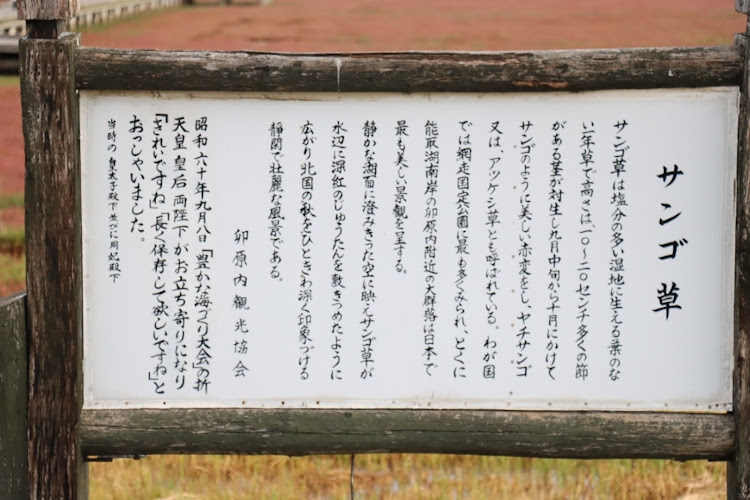 サンゴ草
サンゴ草は塩分の多い湿地に生える葉のな
い一年草で高さは、一〇～二〇センチ多くの節
がある茎が対生し九月中旬から十月にかけて
サンゴのように美しい赤変をし、ヤチサンゴ
又は、アツケシ草とも呼ばれている。わが国
では網走国定公園に最も多くみられ、とくに
能取湖南岸の卯原内附近の大群落は日本で
最も美しい景観を呈する。
静かな湖面に澄みきった空に映えサンゴ草が
水辺に深紅のじゅうたんを敷きつめたように
広がり北国の秋をひときわ深く印象づける
静閑で壮麗な風景である。
卯原内観光協会
昭和六十年九月八日「豊かな海づくり大会」の折
天皇皇后両陛下がお立ち寄りになり
「きれいですね」「長く保存して欲しいですね」と
おっしゃいました。
当時の皇太子殿下並びに同妃殿下